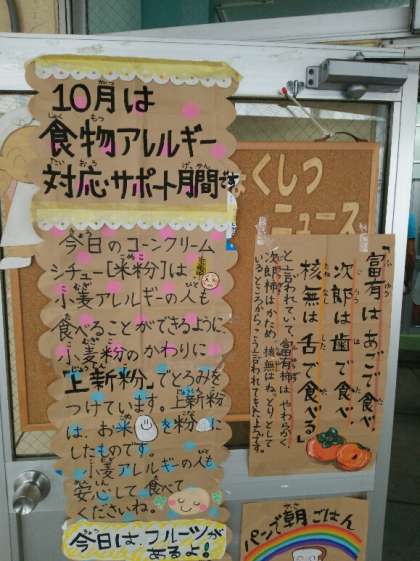 10月は
食物アレルギー
対応サポート月間です。
今日のコーンクリーム
シチュー[米粉]は
小麦アレルギーの人も
食べることができるように
小麦粉のかわりに
「上新粉」でとろみを
つけています。上新粉
は、お米を粉に
したものです。
小麦アレルギーの人も
安心して食べて
くださいね。
今日は、フルーツが
あるよ！
くしつ
ニュース
「富有はあごで食べ、
次郎は歯で食べ、
核無は舌で食べる」
と言われていて、富有柿はやわらかく、
次郎柿はかため、核無はねっとりとして
いるところからこう言われてきたようです。
パンで朝ごはん